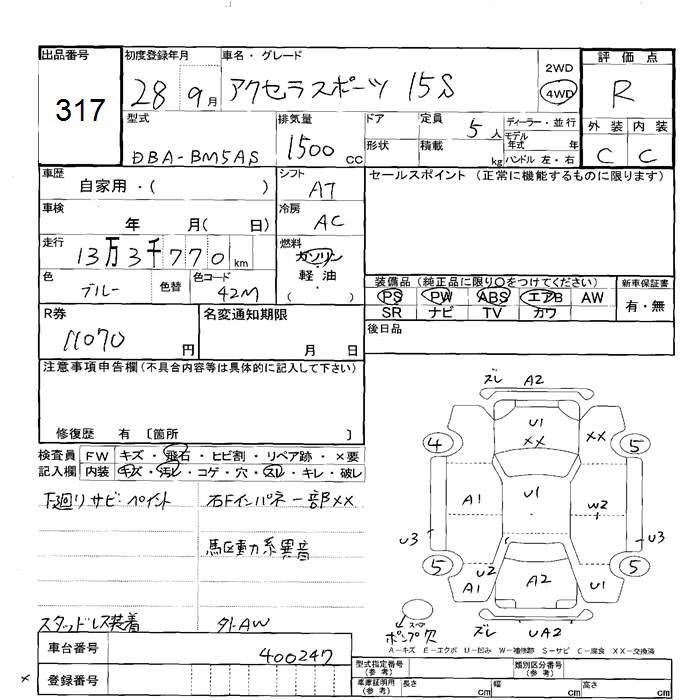 出品番号
317
初度登録年月
28 9月
車名・グレード
アクセラスポーツ 15S
2WD
4WD
評価点
R
外装 内装
C C
型式
DBA-BM5AS
排気量
1500 cc
ドア
形状
定員
5人
積載
kg
ディーラー・並行
モデル
年式 年
ハンドル 左・右
車歴
自家用・( )
シフト
AT
車検
年 月( 日)
冷房
AC
走行
13万3千770km
燃料
ガソリン
軽・油
( )
色
ブルー
色替
色コード
42M
R券
11070円
名変通知期限
月 日
セールスポイント (正常に機能するものに限ります)
装備品(純正品に限り〇をつけてください)
PS PW ABS エアB AW
SR ナビ TV カワ
新車保証書
有・無
後日品
注意事項申告欄(不具合内容等は具体的に記入して下さい)
修復歴 有 〔箇所 〕
検査員
記入欄
FW キズ・飛石・ヒビ割・リペア跡・×要
内装 キズ・汚レ・コゲ・穴・スレ・キレ・破レ
下廻りサビ・ペイント
右Fインパネ一部××
駆動系異音
スタッドレス装着
外AW
車台番号
400247
登録番号
×
ズレ A2
U1
××
××
4
5
A1
U1
W2
U3
U3
5
5
A1
U2
A2
U1
ズレ UA2
スペア
ポンプ欠
A-キズ E-エクボ U-凹み W-補修跡 S-サビ C-腐食 XX-交換済
型式指定番号
(参考)
類別区分番号
(参考)
車庫証明用
(参考)
長さ cm
幅 cm
高さ cm